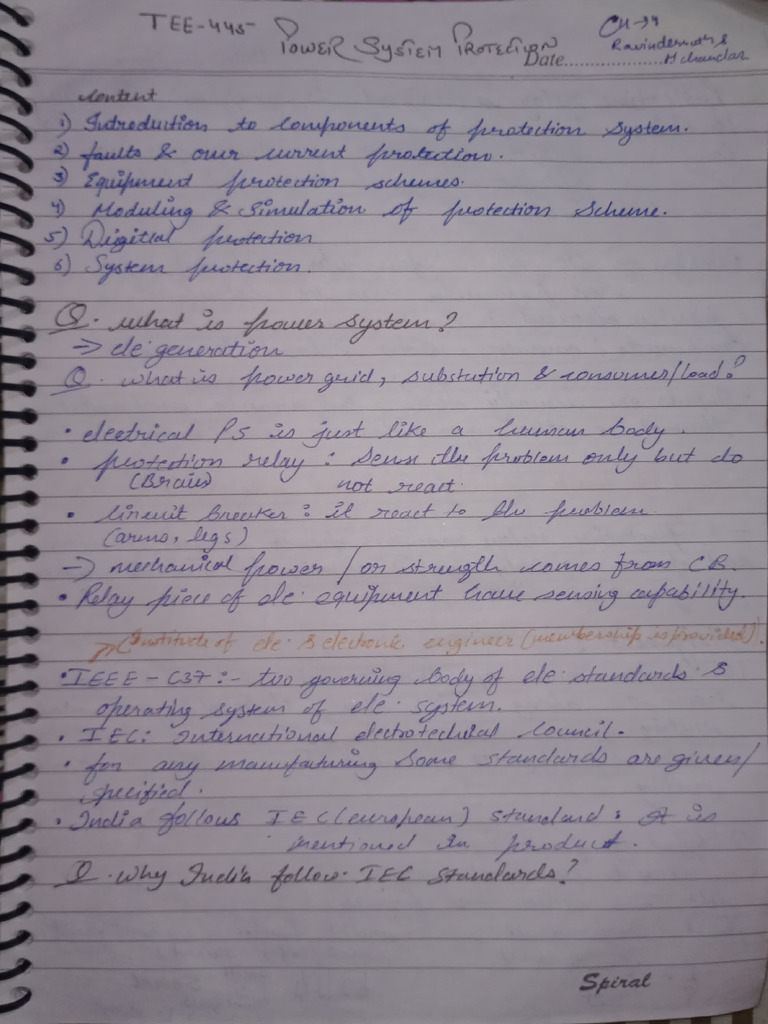 TEE-445 Power System Protection CH-4
Ravindernath &
Date.................. M chandar
content
1) Introduction to components of protection system.
2) faults & over current protection.
3) Equipment protection schemes.
4) Moduling & Simulation of protection scheme.
5) Digital protection
6) System protection.
Q. what is power system?
→ ele. generation
Q. what is power grid, substation & consumer/load?
• electrical PS is just like a human body.
• protection relay : sense the problem only but do
(Brain) not react.
• circuit breaker : it react to the problem
(arms, legs)
→ mechanical power / or strength comes from CB.
• Relay piece of ele. equipment have sensing capability.
→ (Institute of ele. & electronic engineer (membership is provided)).
• IEEE - C37 :- two governing body of ele. standards &
operating system of ele. system.
• IEC: International electrotechnical council.
• for any manufacturing some standards are given/
specified.
• India follows IEC (european) standard : It is
mentioned in product.
Q. why India follow IEC standards?
Spiral